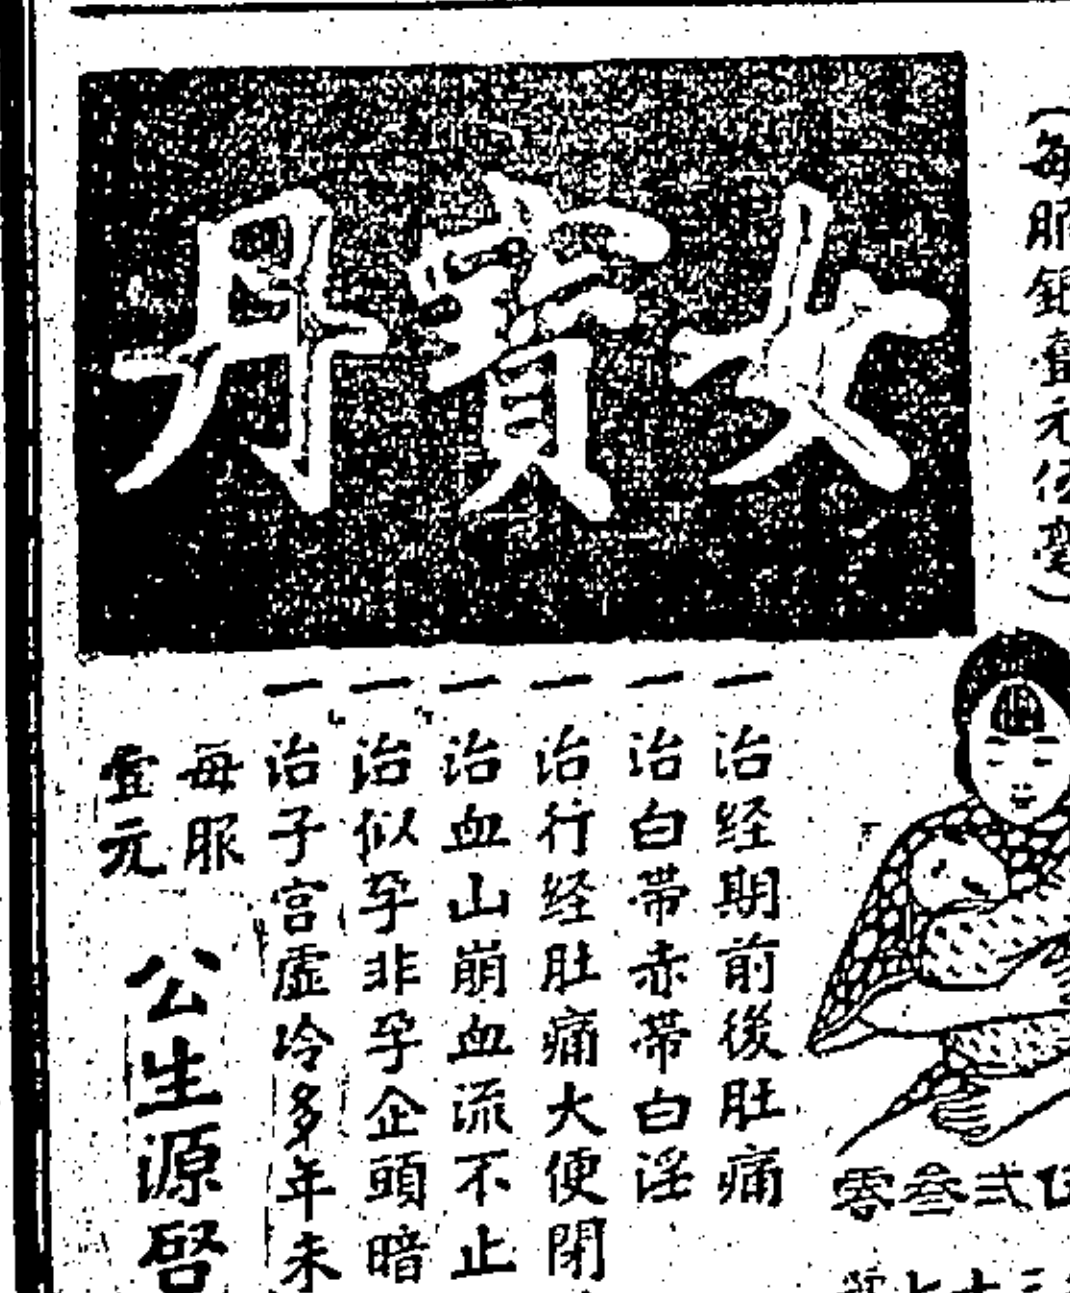 女寶丹
一治经期前後肚痛
一治白带赤带白淫
一治行经肚痛大便閉
一治血山崩血流不止
一治似孕非孕企頭暗
一治子宫虚冷多年未
每服
壹元
公生源啓
零叁弍